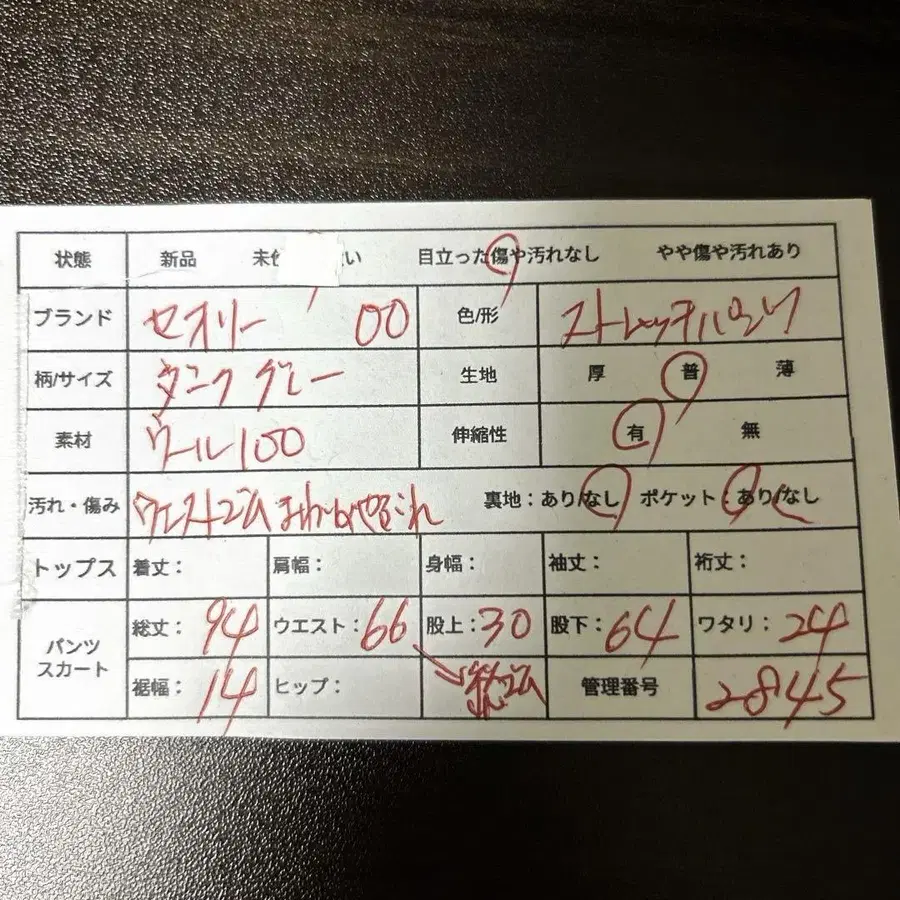 状態 新品 未 い 目立った傷や汚れなし やや傷や汚れあり
ブランド セオリー 00 色/形 ストレッチパンツ
柄/サイズ ダークグレー 生地 厚 普 薄
素材 ウール100 伸縮性 有 無
汚れ・傷み ウエストゴム 裏地:あり/なし ポケット:あり/なし
トップス 着丈: 肩幅: 身幅: 袖丈: 裄丈:
パンツ スカート 総丈:94 ウエスト:66 股上:30 股下:64 ワタリ:24
裾幅:14 ヒップ: 総ゴム 管理番号 2845